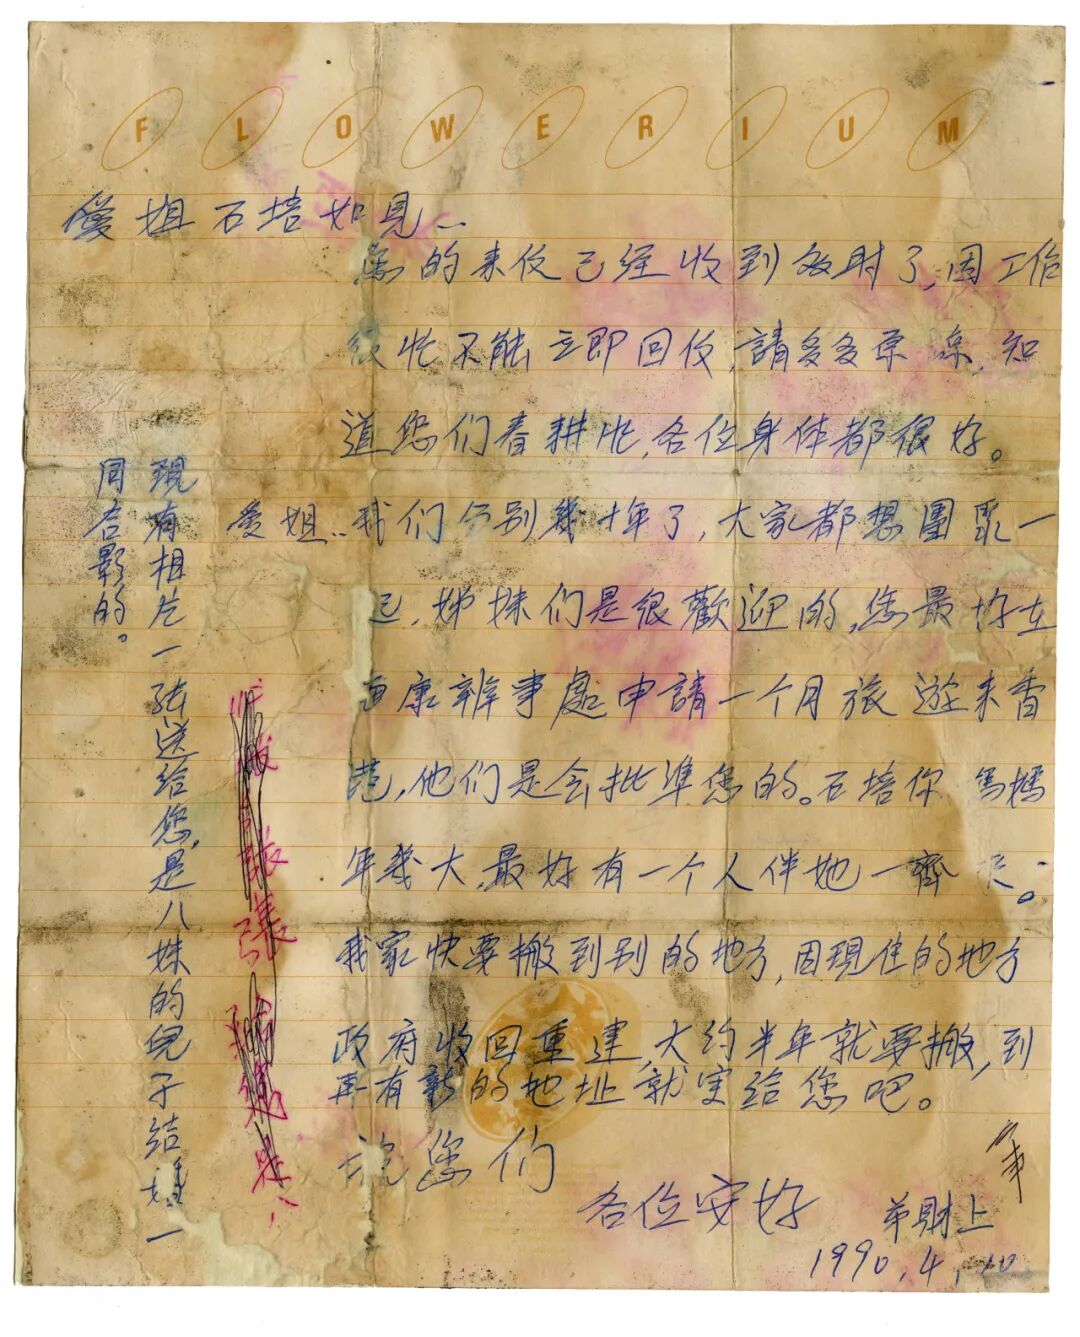 FLOWERIUM
愛姐石培如見..
您的来仪已经收到多时了,因工作
很忙不能立即回仪,請多多原凉,知
道您们春耕忙,各位身体都很好。
爱姐..我们分别幾十年了,大家都想團聚一
己,姊妹们是很歡迎的,您最好在
康辦事處申請一个月旅遊来香
范,他们是会批準您的。石培你媽媽
年幾大,最好有一个人伴她一齊
我家快要搬到别的地方,因現住的地方
政府收回重建,大约半年就要搬,到
再有新的地址就寀给您吧。
祝您们
各位安好
弟財上
1990.4.10
現有相片一张送给您,是八妹的兒子结婚一
同合影的。